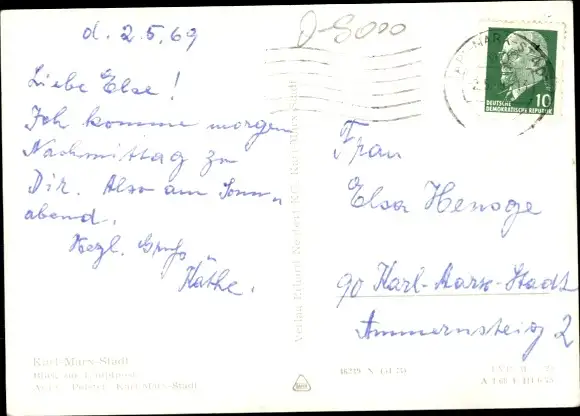 d. 2.5.69
D-9000
Liebe Else!
Ich komme morgen
Nachmittag zu
Dir. Also am Sonn-
abend.
Herzl. Gruß
Käthe.
DEUTSCHE
DEMOKRATISCHE REPUBLIK
10
Frau
Elsa Henoge
90 Karl-Marx-Stadt
Ammernsteig 2
Verlag Erhard Neubert KG, Karl-Marx-Stadt
Karl-Marx-Stadt
Blick zur Hauptpost
Karl-Marx-Stadt